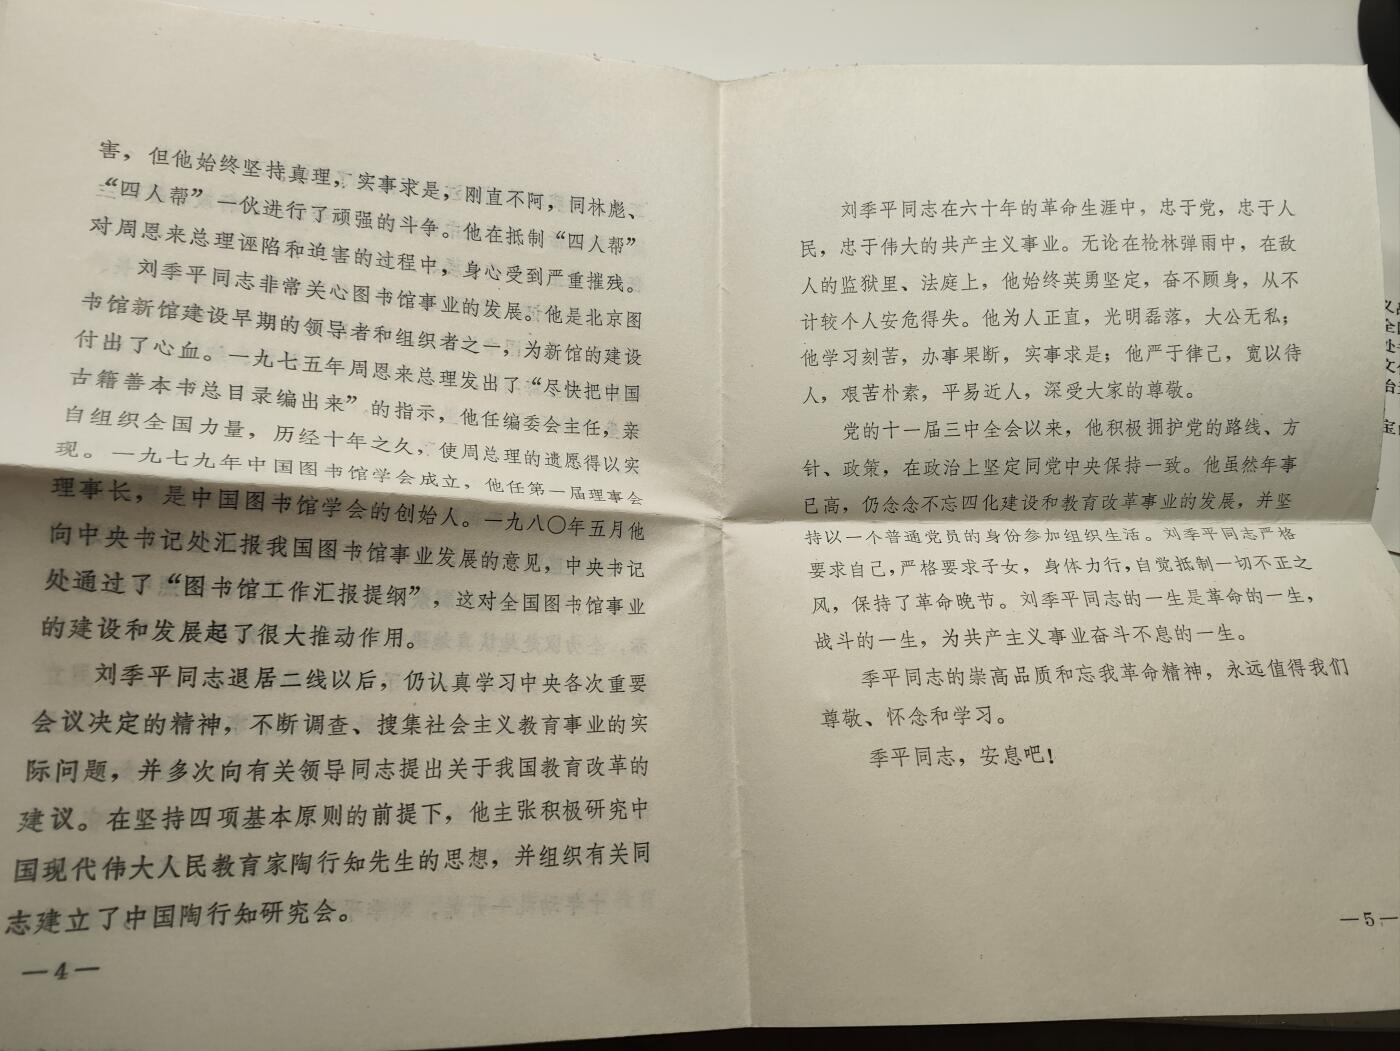 害，但他始终坚持真理，实事求是，刚直不阿，同林彪、
“四人帮”一伙进行了顽强的斗争。他在抵制“四人帮”
对周恩来总理诬陷和迫害的过程中，身心受到严重摧残。
刘季平同志非常关心图书馆事业的发展。他是北京图
书馆新馆建设早期的领导者和组织者之一，为新馆的建设
付出了心血。一九七五年周恩来总理发出了“尽快把中国
古籍善本书总目录编出来”的指示，他任编委会主任，亲
自组织全国力量，历经十年之久，使周总理的遗愿得以实
现。一九七九年中国图书馆学会成立，他任第一届理事会
理事长，是中国图书馆学会的创始人。一九八〇年五月他
向中央书记处汇报我国图书馆事业发展的意见，中央书记
处通过了“图书馆工作汇报提纲”，这对全国图书馆事业
的建设和发展起了很大推动作用。
刘季平同志退居二线以后，仍认真学习中央各次重要
会议决定的精神，不断调查、搜集社会主义教育事业的实
际问题，并多次向有关领导同志提出关于我国教育改革的
建议。在坚持四项基本原则的前提下，他主张积极研究中
国现代伟大人民教育家陶行知先生的思想，并组织有关同
志建立了中国陶行知研究会。
—4—
刘季平同志在六十年的革命生涯中，忠于党，忠于人
民，忠于伟大的共产主义事业。无论在枪林弹雨中，在敌
人的监狱里、法庭上，他始终英勇坚定，奋不顾身，从不
计较个人安危得失。他为人正直，光明磊落，大公无私；
他学习刻苦，办事果断，实事求是；他严于律己，宽以待
人，艰苦朴素，平易近人，深受大家的尊敬。
党的十一届三中全会以来，他积极拥护党的路线、方
针、政策，在政治上坚定同党中央保持一致。他虽然年事
已高，仍念念不忘四化建设和教育改革事业的发展，并坚
持以一个普通党员的身份参加组织生活。刘季平同志严格
要求自己，严格要求子女，身体力行，自觉抵制一切不正之
风，保持了革命晚节。刘季平同志的一生是革命的一生，
战斗的一生，为共产主义事业奋斗不息的一生。
季平同志的崇高品质和忘我革命精神，永远值得我们
尊敬、怀念和学习。
季平同志，安息吧！
—5—